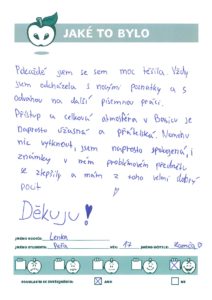 JAKÉ TO BYLO
Pokaždé jsem se sem moc těšila. Vždy
jsem odcházela s novými poznatky a s
odvahou na další písemnou práci.
Přístup a celková atmosféra v je
naprosto úžasná a přátelská. Nemohu
nic vytknout, jsem naprosto spokojená, i
známky v mém problémovém předmětu
se zlepšily a mám z toho velmi dobrý
pocit
Děkuju!
JMÉNO RODIČE: Lenka
JMÉNO STUDENTA: Petra VĚK: 17
SOUHLASÍM SE ZVEŘEJNĚNÍM: ANO NE